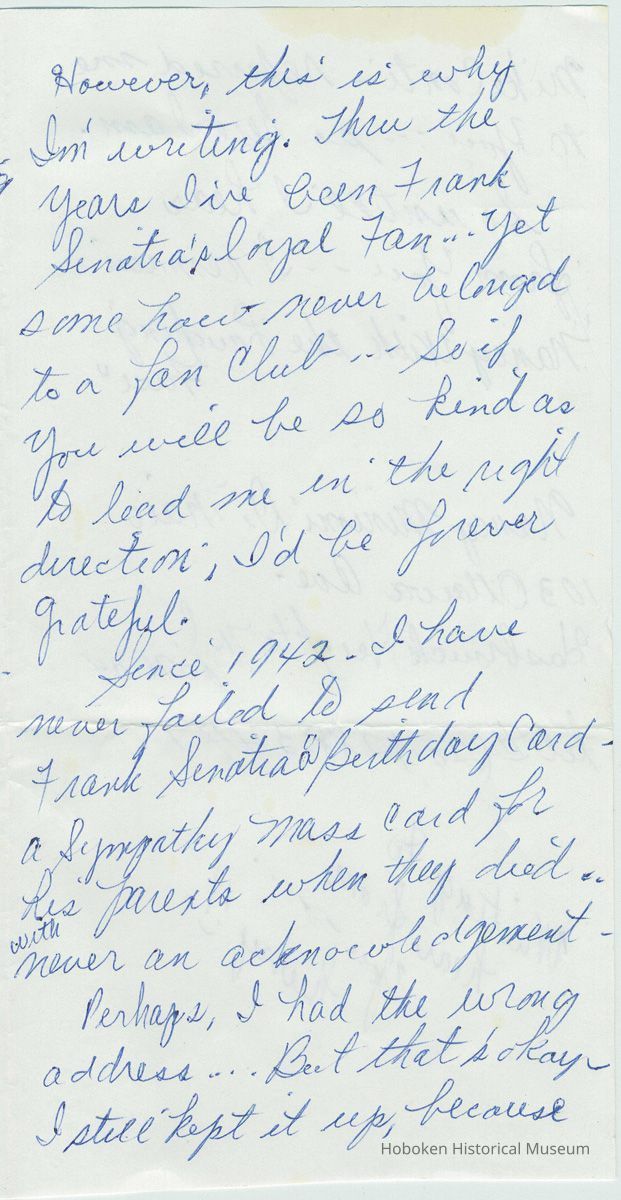 However, this is why
I'm writing. Thru the
years I've been Frank
Sinatra's loyal Fan... Yet
some how never belonged
to a fan Club... So if
you will be so kind as
to lead me in the right
direction, I'd be forever
grateful.
Since 1942 - I have
never failed to send
Frank Sinatra a Birthday Card -
a Sympathy Mass Card for
his parents when they died ..
with
never an acknowledgement -
Perhaps, I had the wrong
address.... But that's okay -
I still kept it up, because
Hoboken Historical Museum